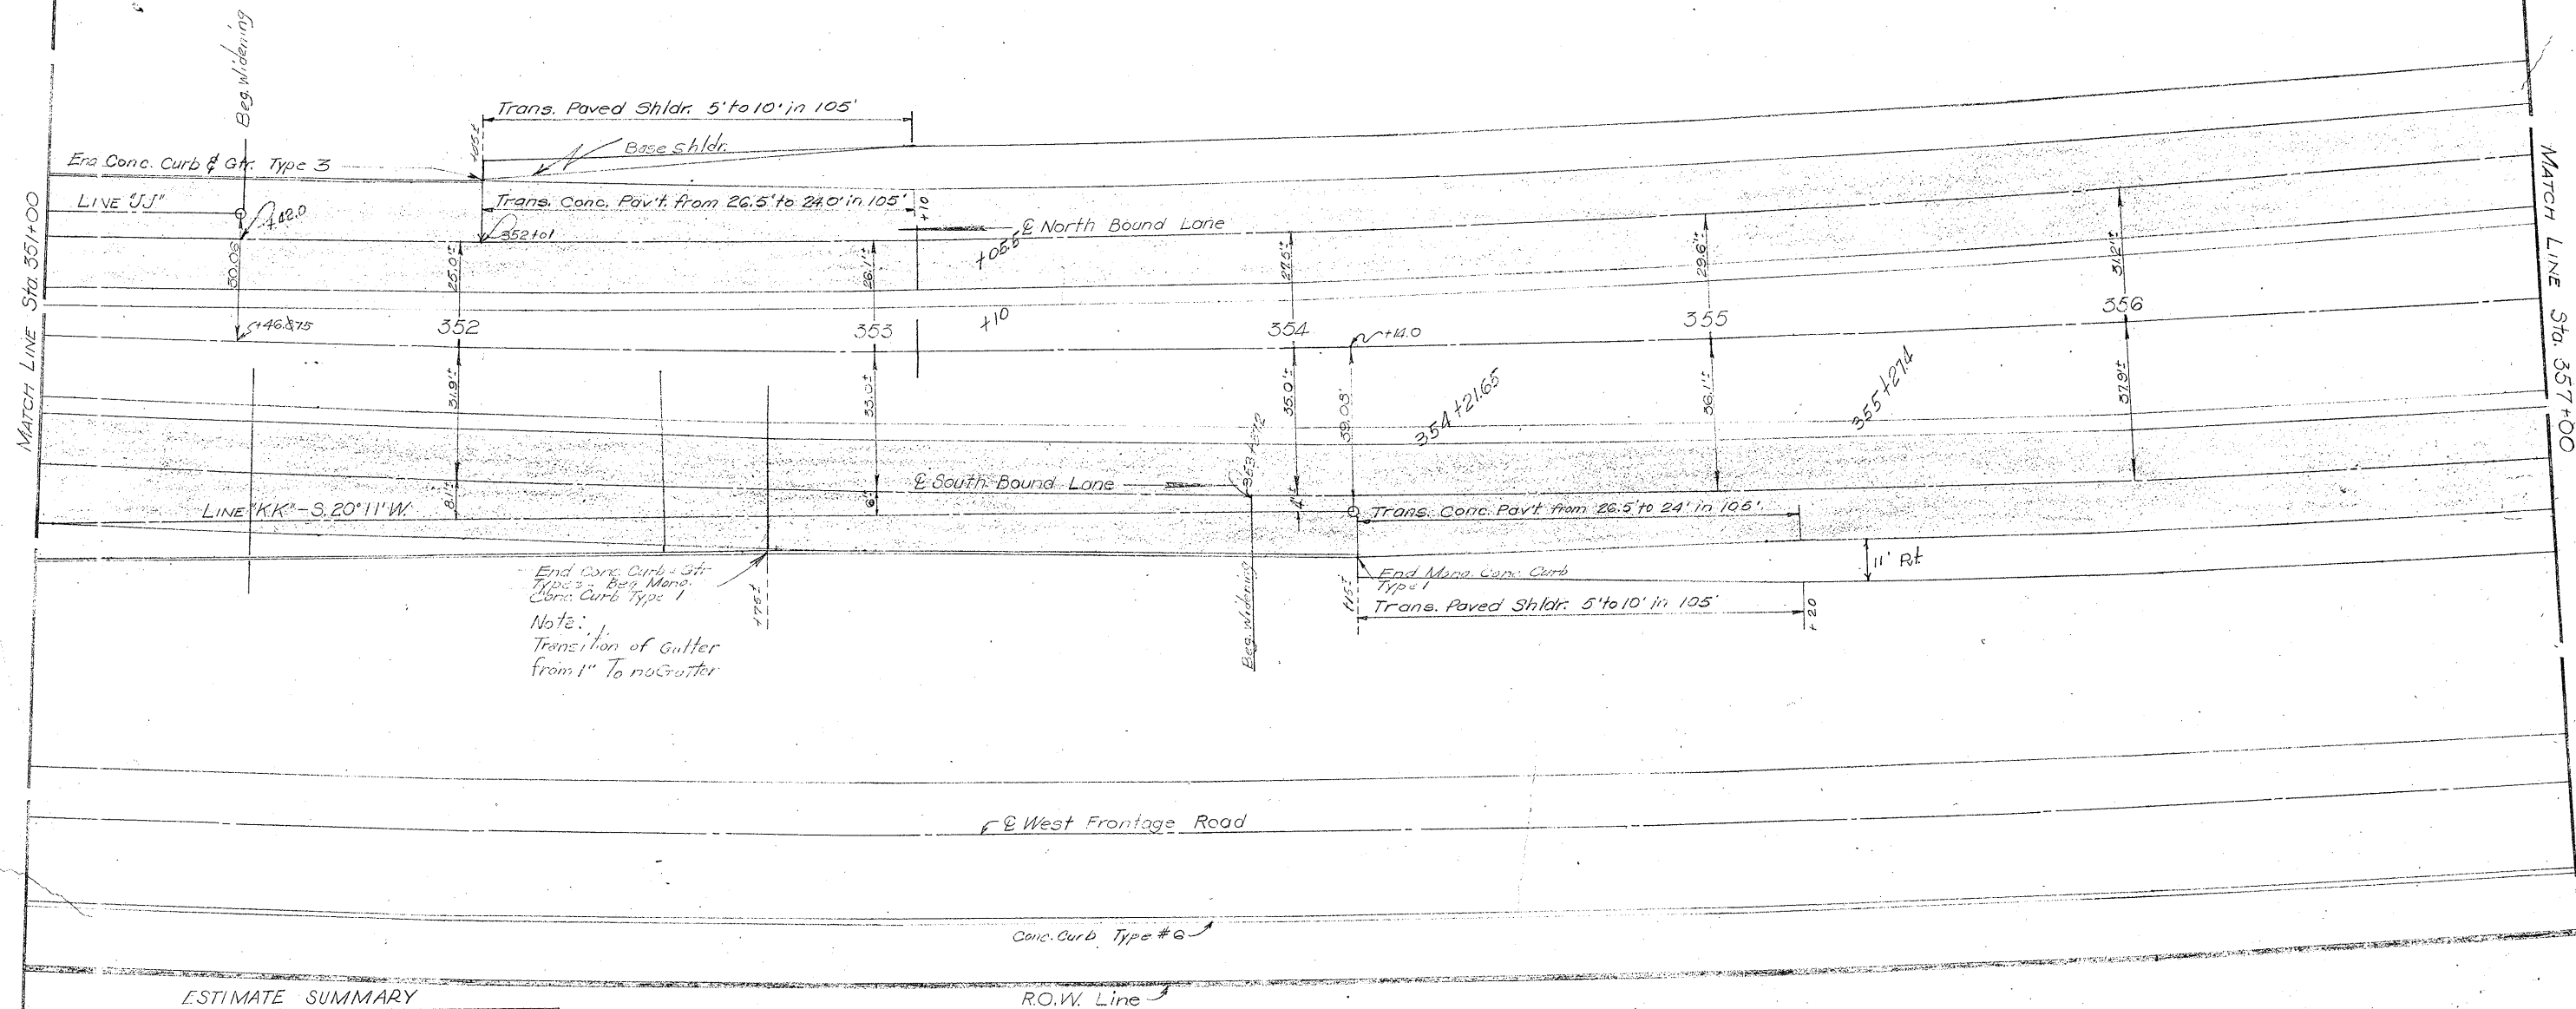 Beg. Widening
Trans. Paved Shldr. 5' to 10' in 105'
+05±
Base shldr.
End Conc. Curb & Gtr. Type 3
LINE "JJ"
Trans. Conc. Pav't. from 26.5' to 24.0' in 105'
+10
352+01
℄ North Bound Lane
+05.5
30.06
25.0'±
26.1'±
27.5'±
29.6'±
31.2'±
MATCH LINE Sta. 351+00
MATCH LINE Sta. 357+00
+46.875
352
353
+10
354
+14.0
355
356
31.9'±
33.0'±
35.0'±
39.03'
354+21.65
36.1'±
355+27.4
37.9'±
℄ South Bound Lane
LINE "KK" - S. 20°11' W.
8.1'±
6'±
4'±
Trans. Conc. Pav't from 26.5' to 24' in 105'
11' Rt
End Conc. Curb & Gtr.
Type 3 - Beg. Mono.
Conc. Curb Type 1
+75±
Note:
Transition of Gutter
from 1" To no Gutter
Beg. Widening
+15±
End Mono. Conc. Curb
Type 1
Trans. Paved Shldr. 5' to 10' in 105'
+20
℄ West Frontage Road
Conc. Curb Type #6
ESTIMATE SUMMARY
R.O.W. Line